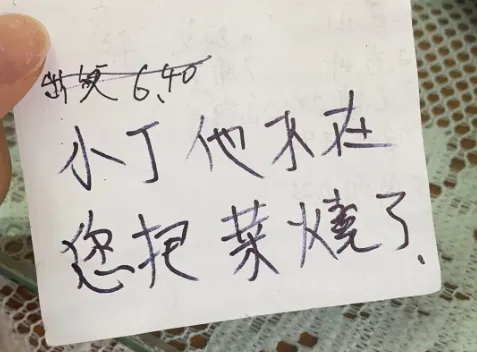 出复 6.40
小丁他不在
您把菜烧了.